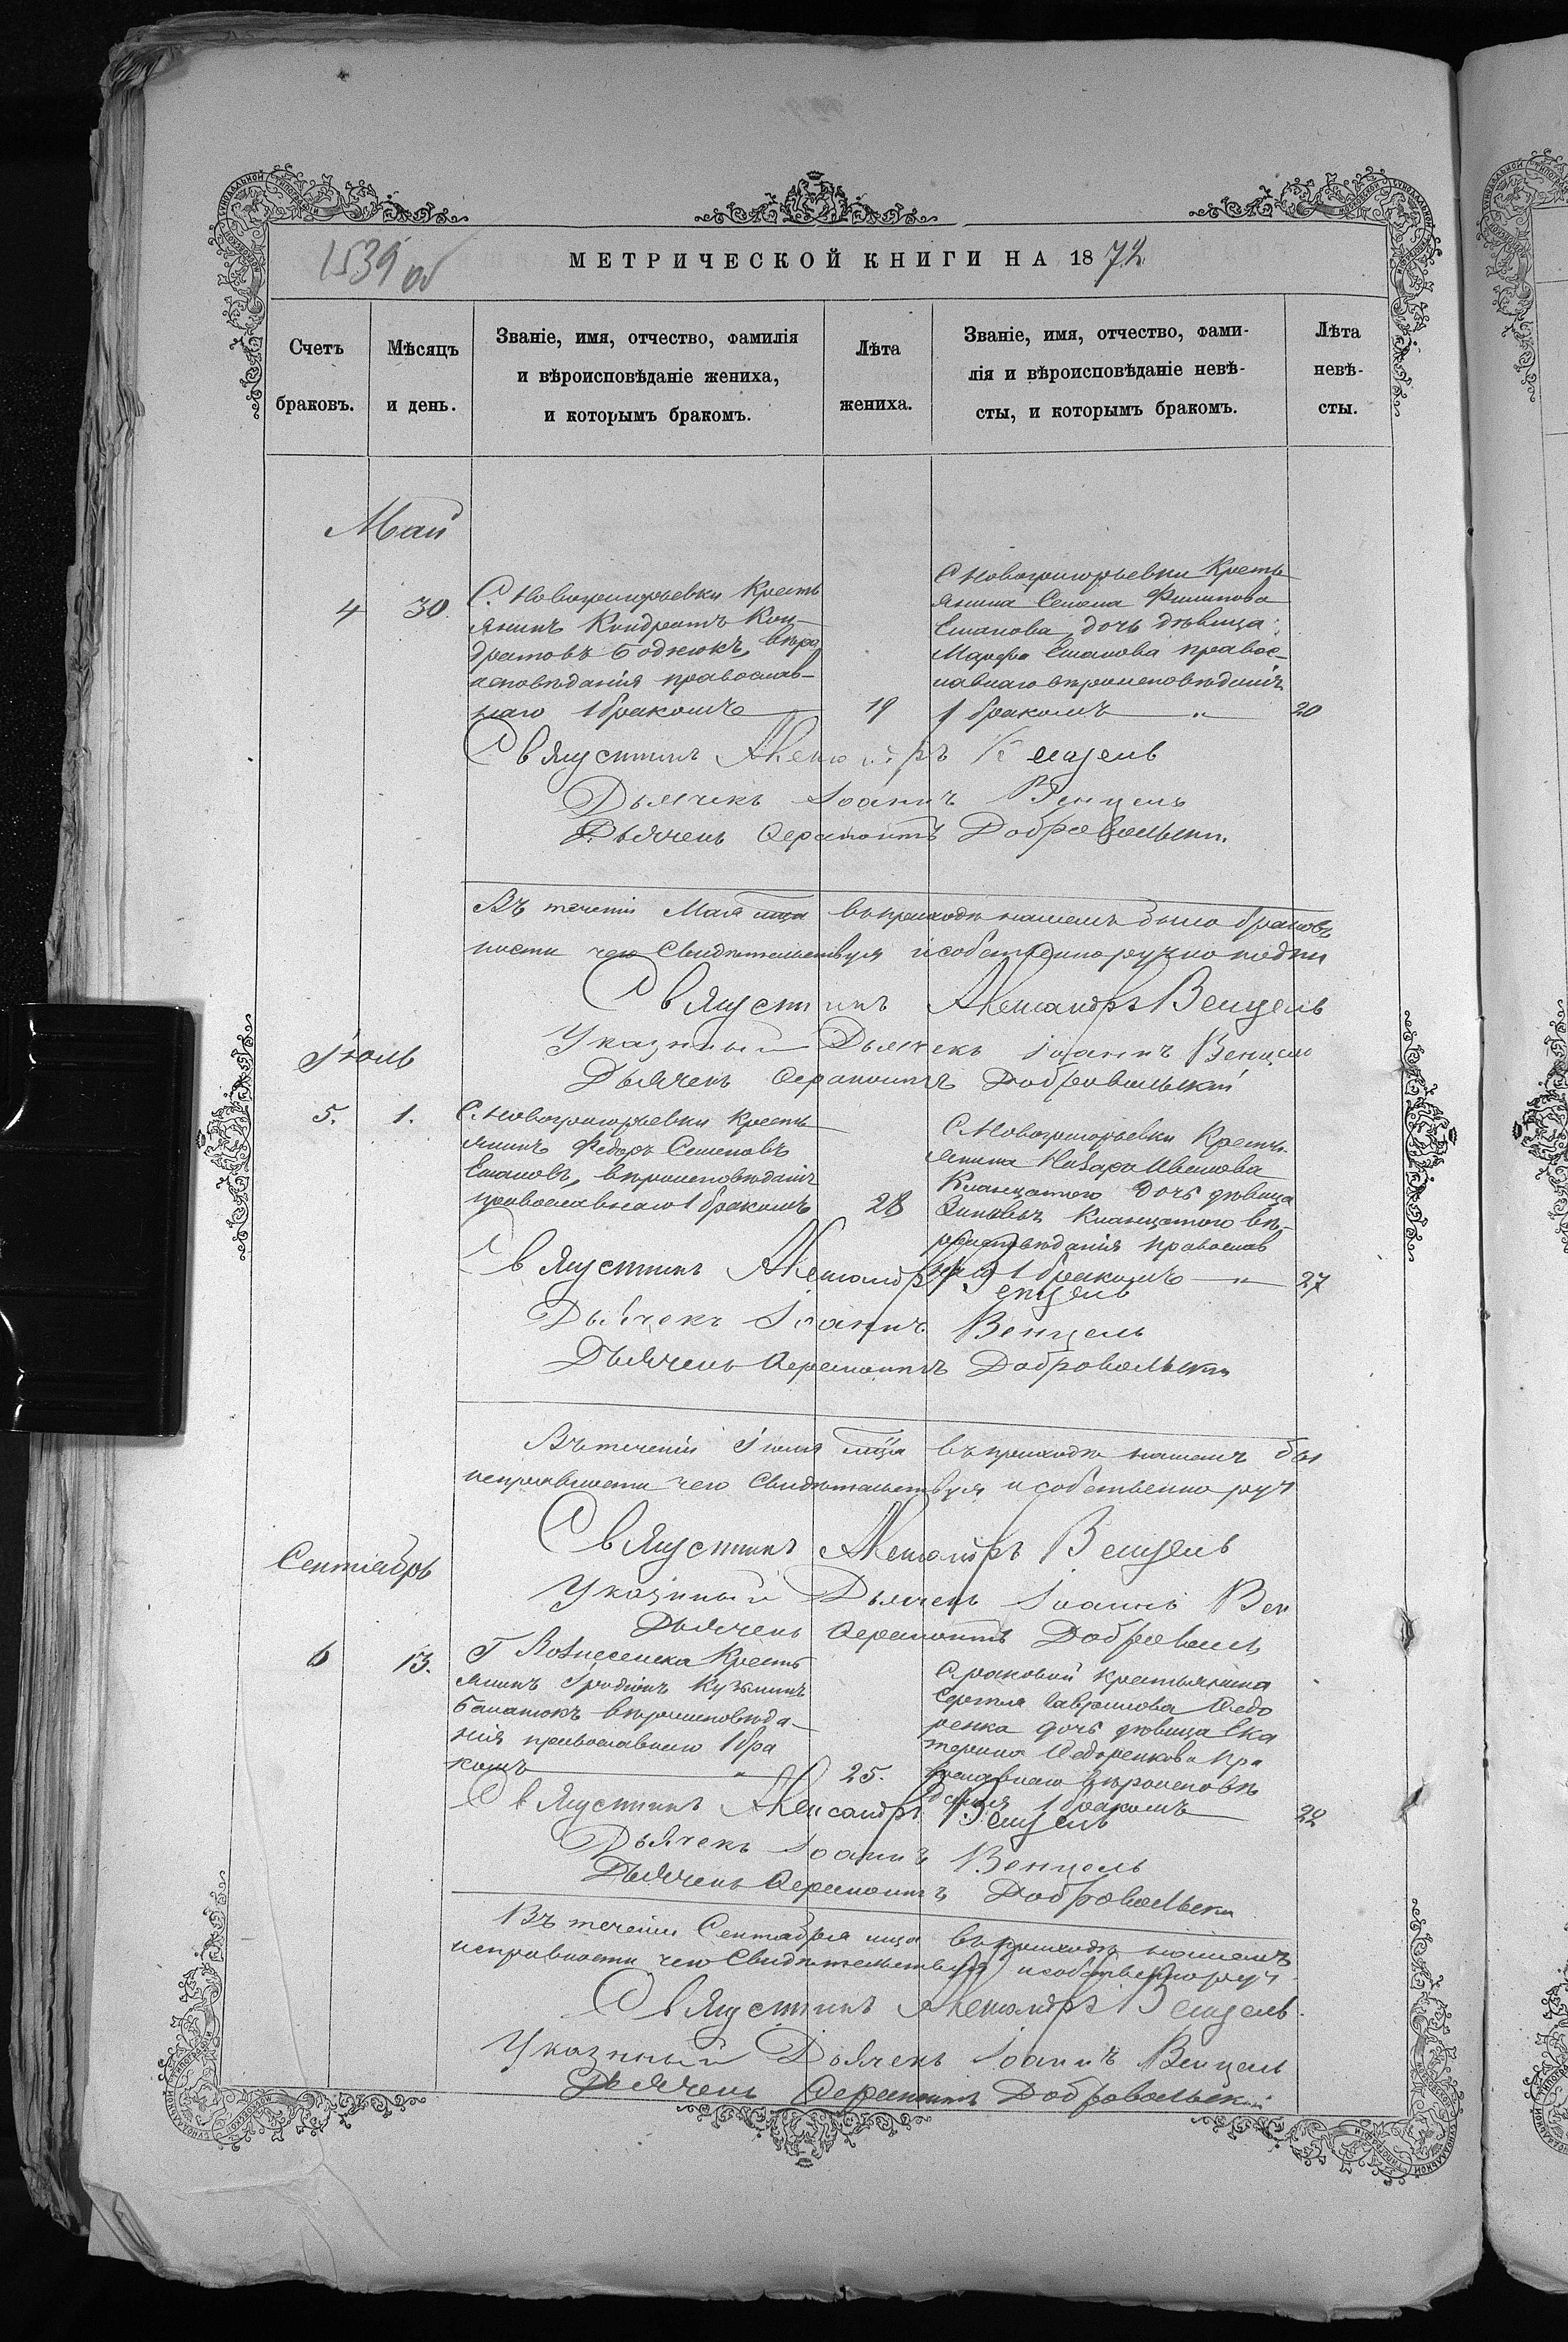 1539 об
МЕТРИЧЕСКОЙ КНИГИ НА 1872
Счетъ браковъ.
Мѣсяцъ и день.
Званіе, имя, отчество, фамилія
и вѣроисповѣданіе жениха,
и которымъ бракомъ.
Лѣта
жениха.
Званіе, имя, отчество, фами-
лія и вѣроисповѣданіе невѣ-
сты, и которымъ бракомъ.
Лѣта
невѣ-
сты.
Май
4
30
С. Новогригорьевки Кресть
янинъ Кондратъ Кон-
дратовъ Боднюкъ, вѣро
исповѣданія православ-
наго 1 бракомъ
19
С Новогригорьевки Кресть
янина Семена Филипова
дочь дѣвица
Марфа правос-
лавнаго вѣроисповѣданія
1 бракомъ „
20
Свящустникъ Александръ Венцель
Дьячекъ Іоаннъ Венцель
Дьяченъ Ферапонтъ Добровольскій.
Въ теченіи Мая мца въ приходѣ нашемъ было браковъ
ности чего Свидѣтельствуя и собственноручно подпи
Свящустникъ Александръ Венцель
Указнный Дьячекъ Іоаннъ Венцель
Дьяченъ Ферапонтъ Добровольскій
Іюль
5.
1.
С. Новогригорьевки Кресть
янинъ Федоръ Семеновъ
вѣроисповѣданія
православнаго 1 бракомъ
28
С Новогригорьевки Кресть
янина Назара Иванова
дочь дѣвица
вѣ-
роисповѣданія православ
наго 1 бракомъ „
27
Свящустникъ Александръ Венцель
Дьячекъ Іоаннъ Венцель
Дьяченъ Ферапонтъ Добровольскій
Въ теченіи Іюля мца въ приходѣ нашемъ бы
исправности чего Свидѣтельствуя и собственноруч
Свящустникъ Александръ Венцель
Указнный Дьячекъ Іоаннъ Вен
Дьяченъ Ферапонтъ Доброволь
Сентябрь
6
13.
Г Вознесенска Кресть
янинъ Іродіонъ Кузьминъ
вѣроисповѣда-
нія православнаго 1 бра
комъ „
25.
крестьянина
Сергѣя Гаврилова Федо
ренка дочь дѣвица Ека
терина Федоренкова пра
вославнаго вѣроисповѣ
данія 1 бракомъ
22
Свящустникъ Александръ Венцель
Дьячекъ Іоаннъ Венцель
Дьяченъ Ферапонтъ Добровольскій
Въ теченіи Сентября мца въ приходѣ нашемъ
исправности чего Свидѣтельствуя и собственноруч
Свящустникъ Александръ Венцель
Указнный Дьячекъ Іоаннъ Венцель
Дьяченъ Ферапонтъ Добровольскій